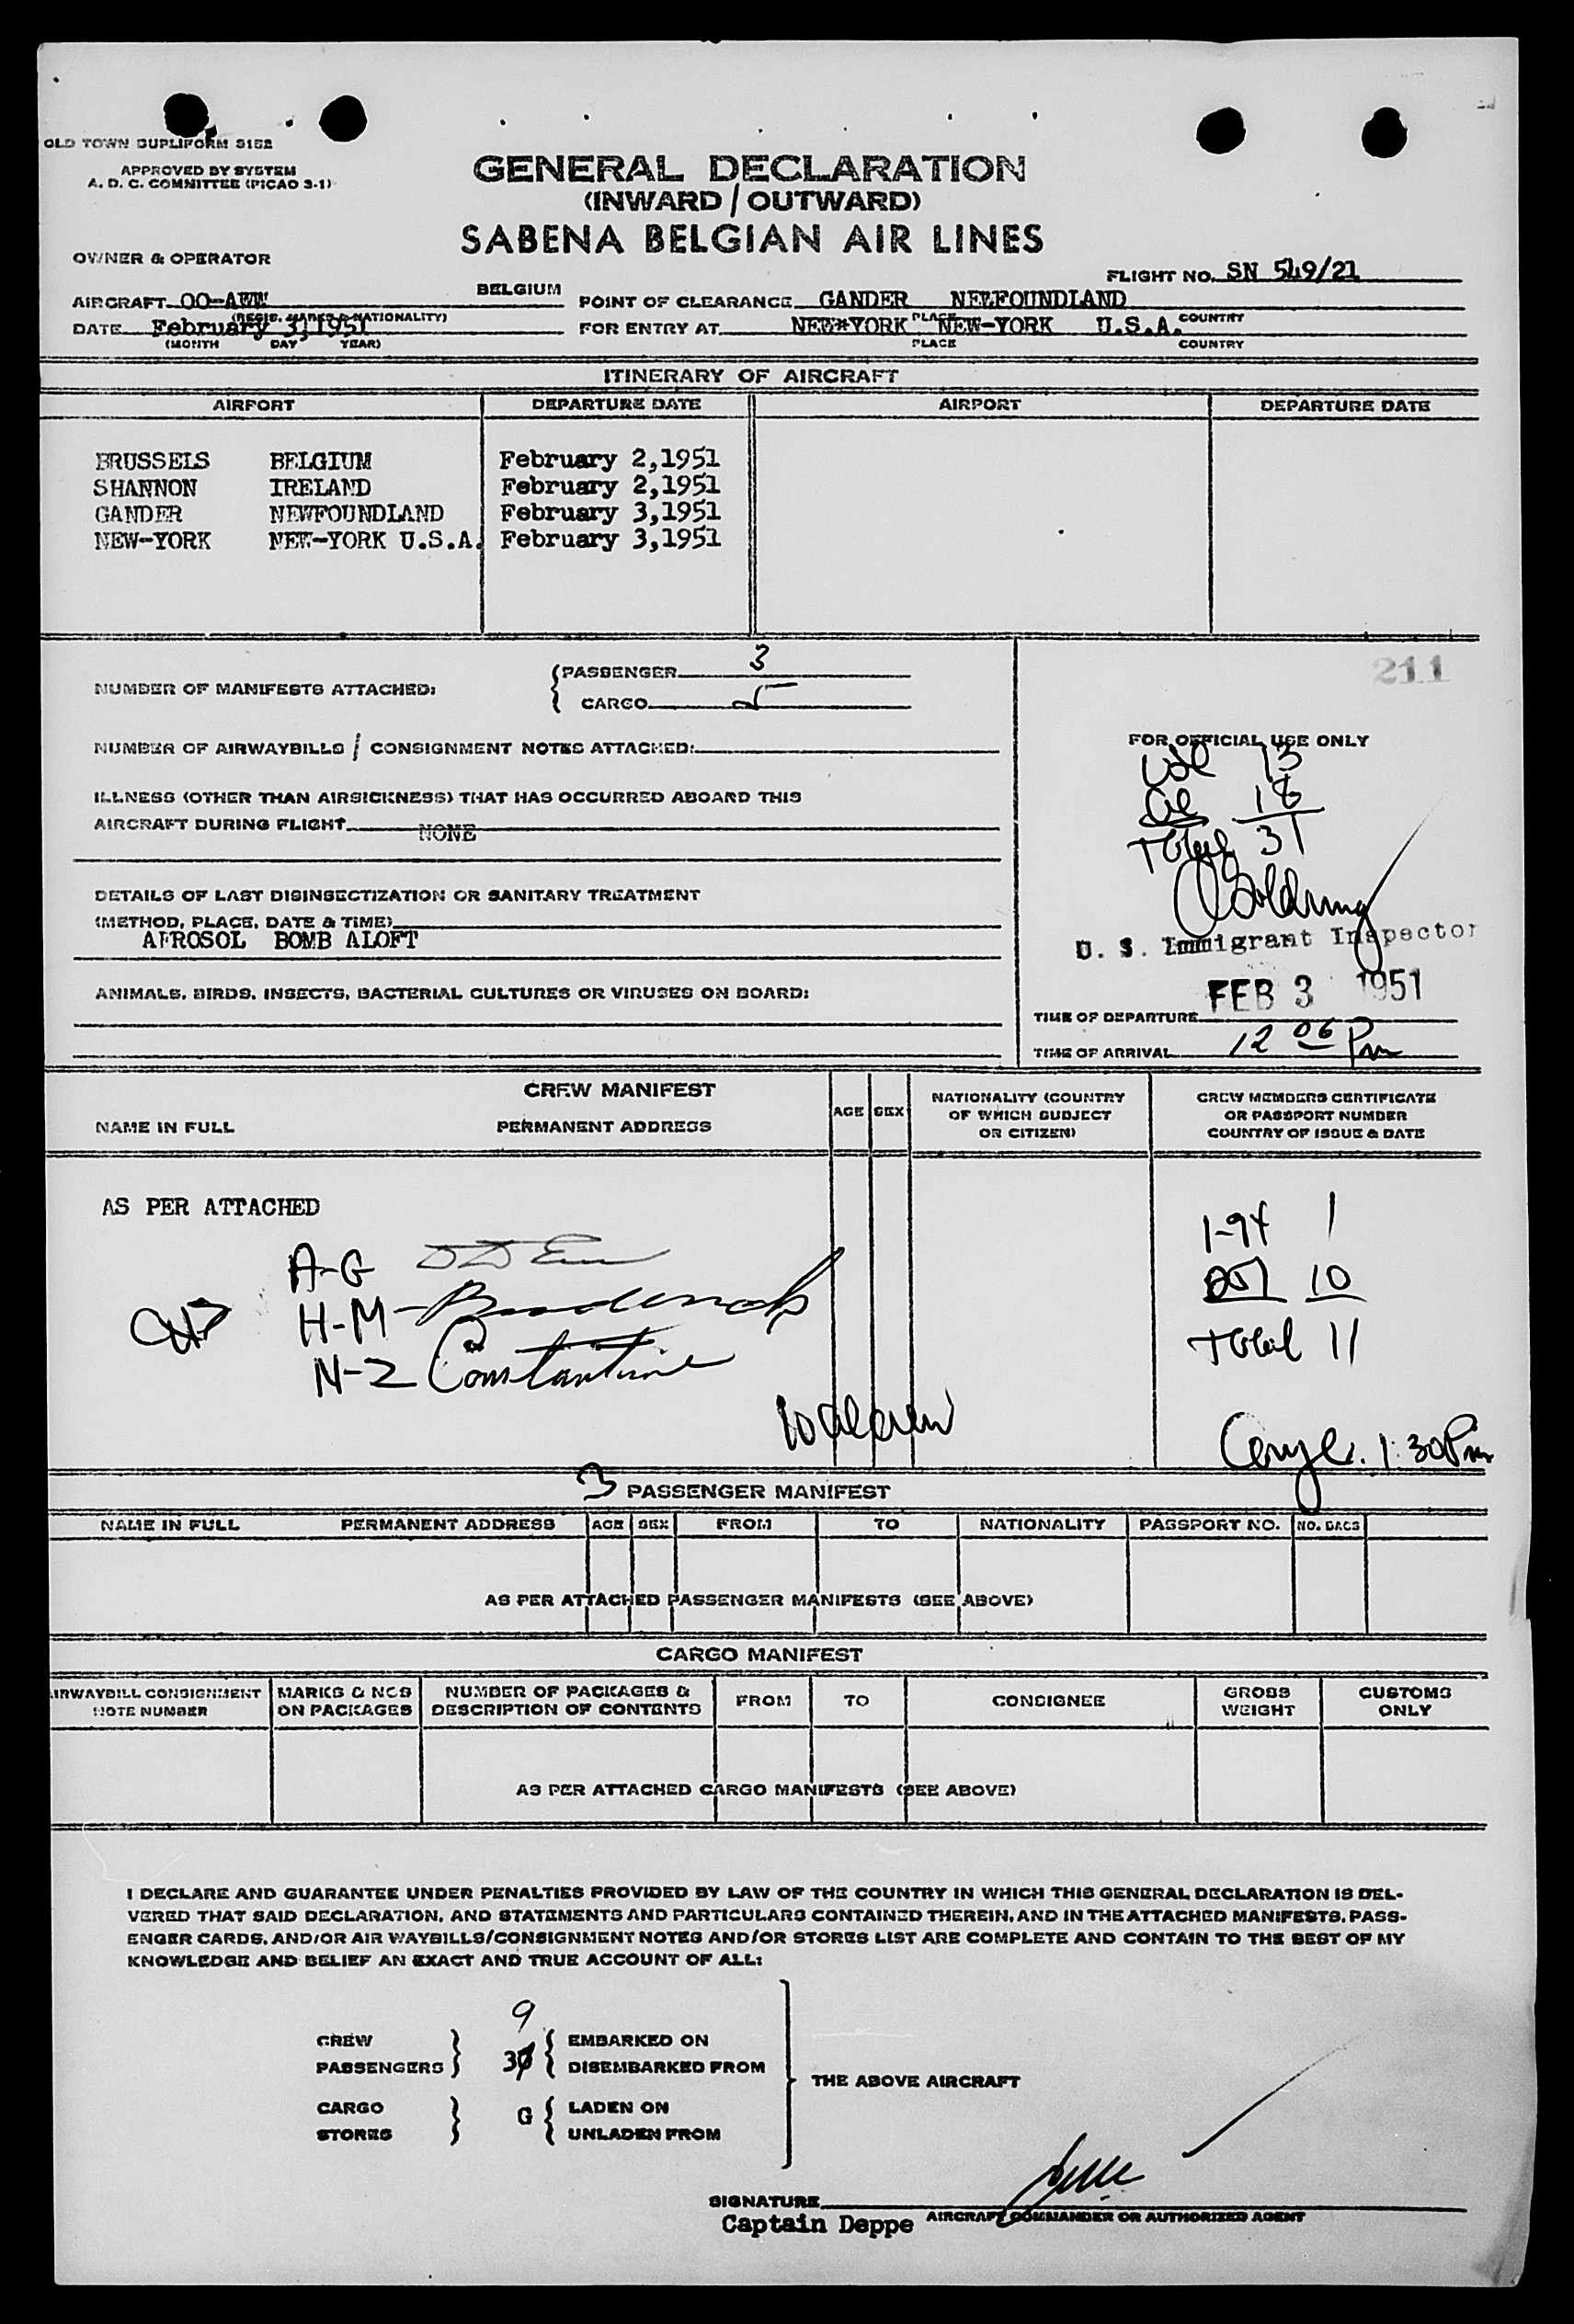 OLD TOWN DUPLIFORM 3152
APPROVED BY SYSTEM
A. D. C. COMMITTEE (PICAO 3-1)
GENERAL DECLARATION
(INWARD / OUTWARD)
SABENA BELGIAN AIR LINES
OWNER & OPERATOR
FLIGHT NO. SN 549/21
BELGIUM
AIRCRAFT OO-AWW POINT OF CLEARANCE GANDER NEWFOUNDLAND
(REGIS. MARKS & NATIONALITY) PLACE COUNTRY
DATE February 3,1951 FOR ENTRY AT NEW*YORK NEW-YORK U.S.A.
(MONTH DAY YEAR) PLACE COUNTRY
ITINERARY OF AIRCRAFT
AIRPORT DEPARTURE DATE AIRPORT DEPARTURE DATE
BRUSSELS BELGIUM February 2,1951
SHANNON IRELAND February 2,1951
GANDER NEWFOUNDLAND February 3,1951
NEW-YORK NEW-YORK U.S.A. February 3,1951
211
NUMBER OF MANIFESTS ATTACHED:
PASSENGER 3
CARGO 5
NUMBER OF AIRWAYBILLS / CONSIGNMENT NOTES ATTACHED:
ILLNESS (OTHER THAN AIRSICKNESS) THAT HAS OCCURRED ABOARD THIS
AIRCRAFT DURING FLIGHT NONE
DETAILS OF LAST DISINSECTIZATION OR SANITARY TREATMENT
(METHOD, PLACE, DATE & TIME)
AEROSOL BOMB ALOFT
ANIMALS, BIRDS, INSECTS, BACTERIAL CULTURES OR VIRUSES ON BOARD:
FOR OFFICIAL USE ONLY
USC 13
al 18
Total 31
U. S. Immigrant Inspector
FEB 3 1951
TIME OF DEPARTURE
TIME OF ARRIVAL 12 06 Pm
CREW MANIFEST
NAME IN FULL PERMANENT ADDRESS AGE SEX
NATIONALITY (COUNTRY
OF WHICH SUBJECT
OR CITIZEN)
CREW MEMBERS CERTIFICATE
OR PASSPORT NUMBER
COUNTRY OF ISSUE & DATE
AS PER ATTACHED
A-G
H-M
N-Z Constantine
I-94 1
257 10
Total 11
1:30 Pm
3 PASSENGER MANIFEST
NAME IN FULL PERMANENT ADDRESS AGE SEX FROM TO NATIONALITY PASSPORT NO. NO. BAGS
AS PER ATTACHED PASSENGER MANIFESTS (SEE ABOVE)
CARGO MANIFEST
AIRWAYBILL CONSIGNMENT
NOTE NUMBER
MARKS & NOS
ON PACKAGES
NUMBER OF PACKAGES &
DESCRIPTION OF CONTENTS
FROM TO CONSIGNEE
GROSS
WEIGHT
CUSTOMS
ONLY
AS PER ATTACHED CARGO MANIFESTS (SEE ABOVE)
I DECLARE AND GUARANTEE UNDER PENALTIES PROVIDED BY LAW OF THE COUNTRY IN WHICH THIS GENERAL DECLARATION IS DEL-
VERED THAT SAID DECLARATION, AND STATEMENTS AND PARTICULARS CONTAINED THEREIN, AND IN THE ATTACHED MANIFESTS, PASS-
ENGER CARDS, AND/OR AIR WAYBILLS/CONSIGNMENT NOTES AND/OR STORES LIST ARE COMPLETE AND CONTAIN TO THE BEST OF MY
KNOWLEDGE AND BELIEF AN EXACT AND TRUE ACCOUNT OF ALL:
CREW 9 EMBARKED ON
PASSENGERS 31 DISEMBARKED FROM
THE ABOVE AIRCRAFT
CARGO G LADEN ON
STORES UNLADEN FROM
SIGNATURE
Captain Deppe AIRCRAFT COMMANDER OR AUTHORIZED AGENT